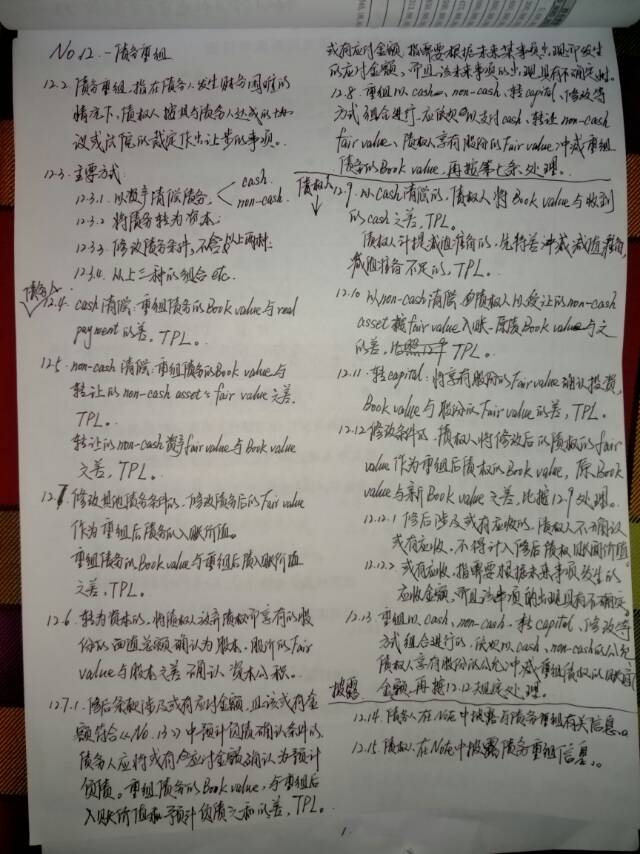 No 12. - 债务重组
12.2 债务重组,指在债务人发生财务困难的
情况下,债权人按其与债务人达成的协
议或法院的裁定作出让步的事项。
12.3. 主要方式
12.3.1. 以资产清偿债务. cash
non-cash
12.3.2 将债务转为资本.
12.3.3 修改债务条件,不含以上两种.
12.3.4. 以上三种的组合 etc.
债务人
12.4. cash清偿:重组债务的Book value与real
payment的差,TPL。
12.5. non-cash清偿:重组债务的Book value与
转让的non-cash asset之fair value之差.
TPL。
转让的non-cash资产fair value与Book value
之差,TPL。
12.7 修改其他债务条件的,修改债务后的Fair value
作为重组后债务的入账价值。
重组债务的Book value与重组后债入账价值
之差,TPL。
12.6. 转为资本的,将债权人放弃债权而享有的股
份的面值总额确认为股本,股份的Fair
value与股本之差确认资本公积。
12.7.1. 修后条款涉及或有应付金额,且该或有金
额符合《No.13》中预计负债确认条件的,
债务人应将或有应付金额确认为预计
负债。重组债务的Book value,与重组后
入账价值和预计负债之和的差,TPL。
或有应付金额,指需要根据未来某事项出现而发生
的应付金额,而且该未来事项的出现具有不确定性。
12.8. 重组以cash、non-cash、转capital、修改等
方式组合进行.应依次以支付cash、转让non-cash
fair value、债权人享有股份的Fair value冲减重组
债务的Book value,再按第七条处理。
债权人
12.9. 以Cash清偿的,债权人将Book value与收到
的cash之差,TPL。
债权人计提减值准备的,先将差冲减减值准备,
减值准备不足的,TPL。
12.10 以non-cash清偿 债权人以受让的non-cash
asset按fair value入账.原债Book value与之
的差,比照12.9 TPL。
12.11. 转capital:将享有股份的Fair value确认投资,
Book value与股份的Fair value的差,TPL。
12.12 修改条件的,债权人将修改后的债权的fair
value作为重组后债权的Book value,原Book
value与新Book value之差,比按12.9处理。
12.12.1 修后涉及或有应收的,债权人不确认
或有应收,不得计入修后债权账面价值
12.12.2 或有应收,指需要根据未来事项发生的
应收金额,而且该事项的出现具有不确定。
12.13. 重组以cash、non-cash、转capital、修改等
方式组合进行的,依次以cash、non-cash的公允
债权人享有股份的公允冲减重组债权的账面
金额,再按12.12规定处理。
披露
12.14. 债务人在Note中披露与债务重组有关信息。
12.15. 债权人在Note中披露债务重组信息。
1.